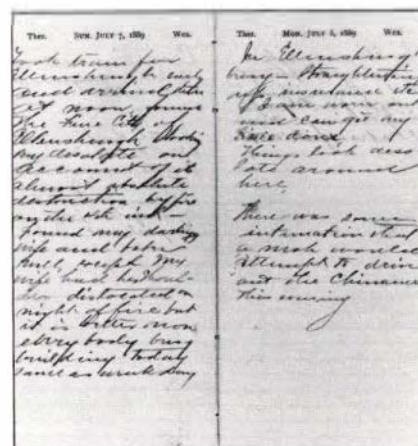 Ther. SUN. JULY 7, 1889 Wea.
Took train for
Ellensburgh early
and arrived
at noon, found
the Fine City of
Ellensburgh looking
very desolate on
account of its
almost absolute
destruction by fire
on the 4th inst —
Found my darling
wife and babe
well, except my
wife had her shoul
der dislocated on
night of fire but
it is better now
every body busy
building today
same as week day
Ther. MON. JULY 8, 1889 Wea.
In Ellensburgh
busy — Straightening
up insurance etc
I am worn out
and can get any
Things look deso
late around
here,
There was some
intimation that
a mob would
attempt to drive
out the Chinamen
this evening